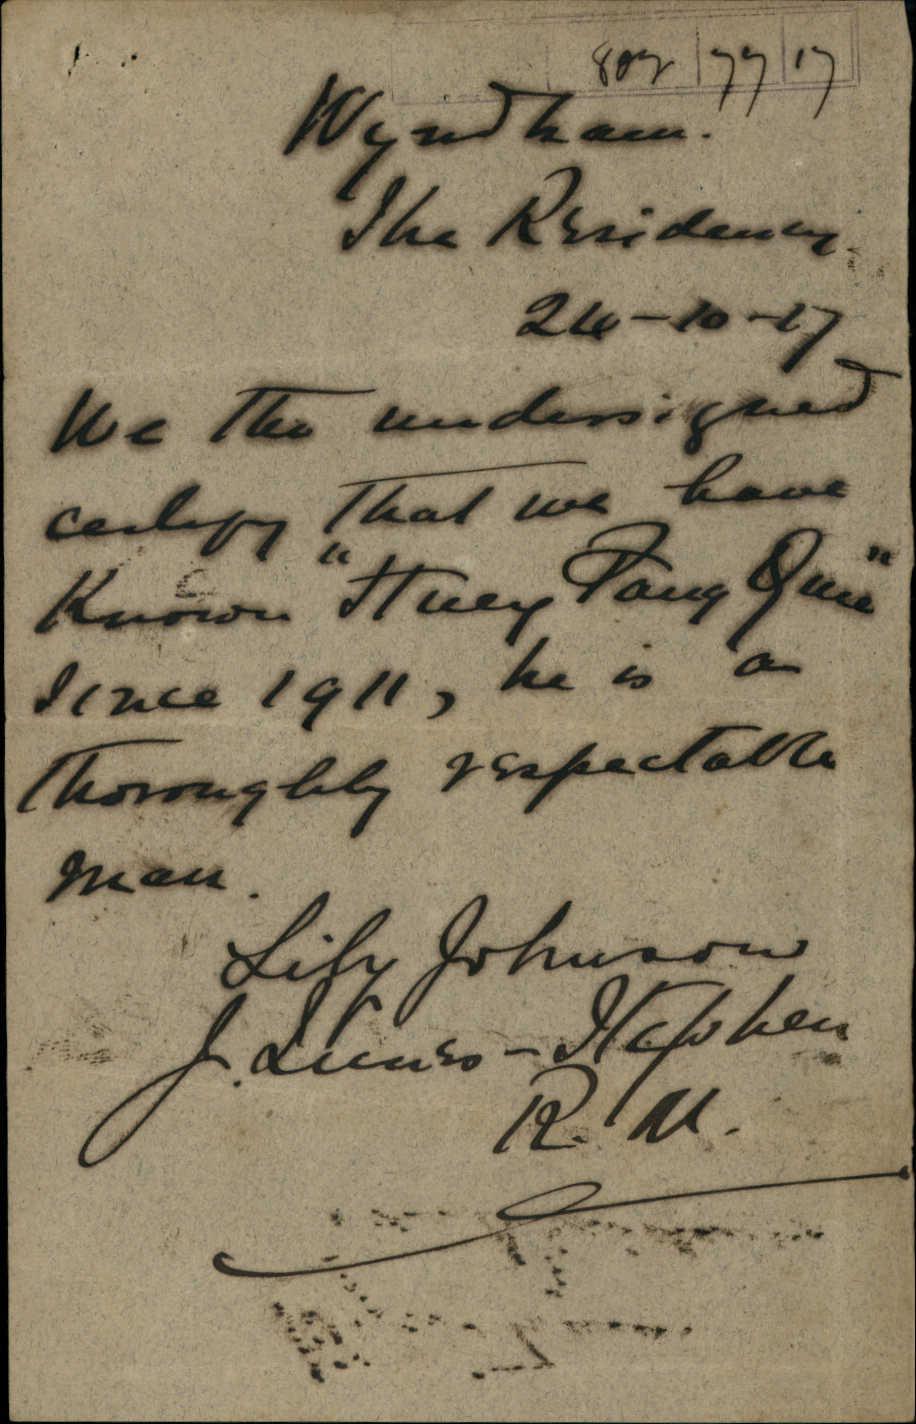 802 | 77 | 17
Wyndham.
The Residency
24-10-17
We the undersigned
certify that we have
Known "Huey Fang Quie"
Since 1911, he is a
thoroughly respectable
man.
Lily Johnson
J. Stephen
R. M.